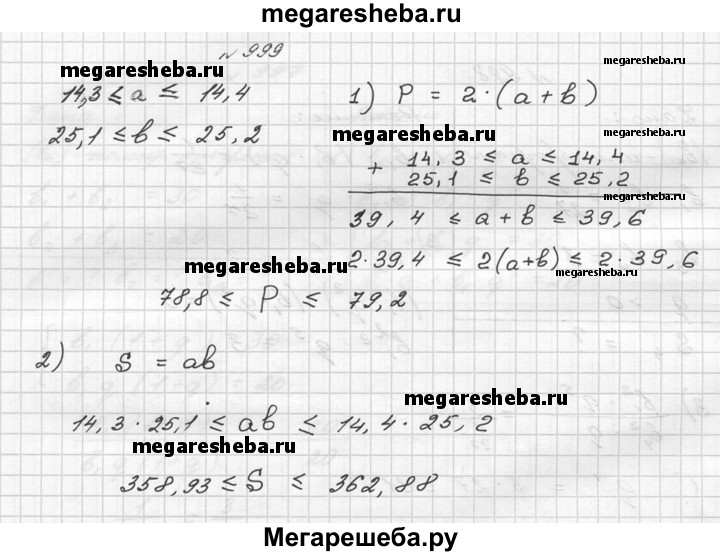 megaresheba.ru
№ 999
megaresheba.ru
14,3 ≤ a ≤ 14,4
25,1 ≤ в ≤ 25,2
1) P = 2·(a+в)
megaresheba.ru
+ 14,3 ≤ a ≤ 14,4
25,1 ≤ в ≤ 25,2
megaresheba.ru
39,4 ≤ a+в ≤ 39,6
2·39,4 ≤ 2(a+в) ≤ 2·39,6
megaresheba.ru
megaresheba.ru
78,8 ≤ P ≤ 79,2
2) S = aв
megaresheba.ru
14,3·25,1 ≤ aв ≤ 14,4·25,2
megaresheba.ru
358,93 ≤ S ≤ 362,88
Мегарешеба.ру